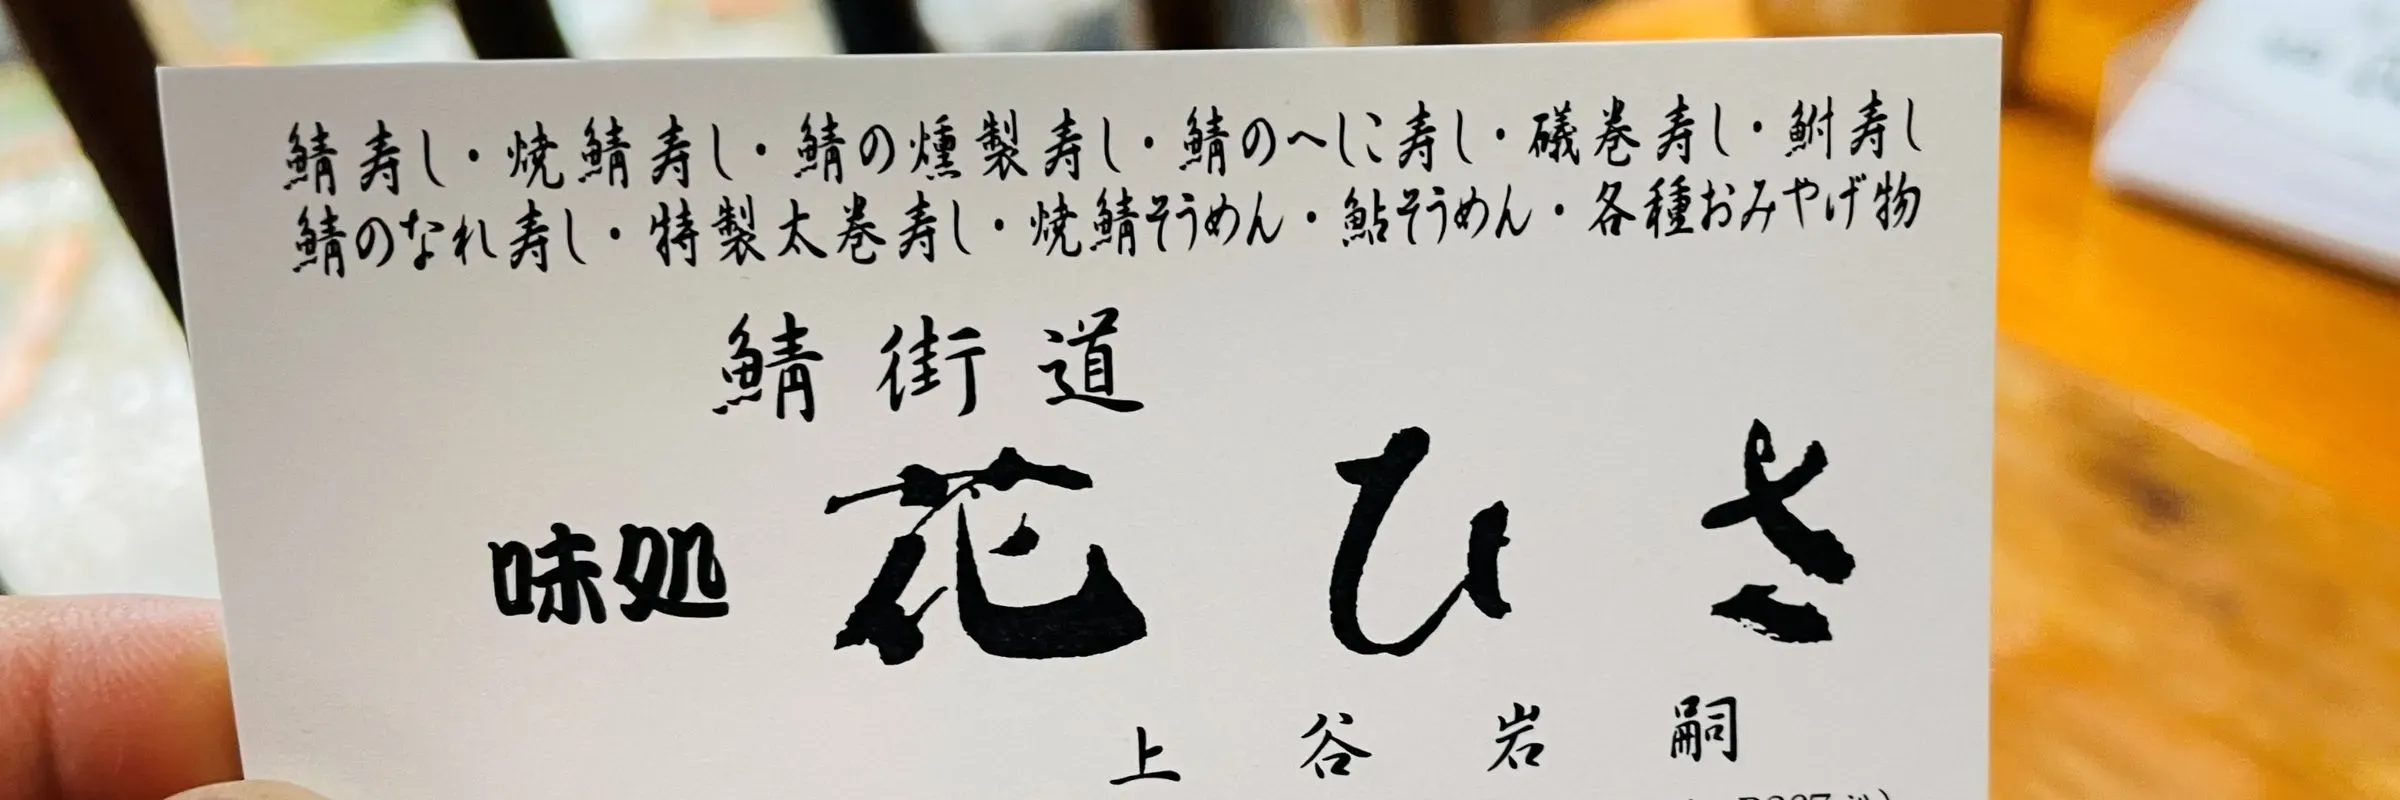 鯖寿し・焼鯖寿し・鯖の燻製寿し・鯖のへしこ寿し・礒巻寿し・鮒寿し
鯖のなれ寿し・特製太巻寿し・焼鯖そうめん・鮎そうめん・各種おみやげ物
鯖街道
味処 花ひさ
上谷岩嗣